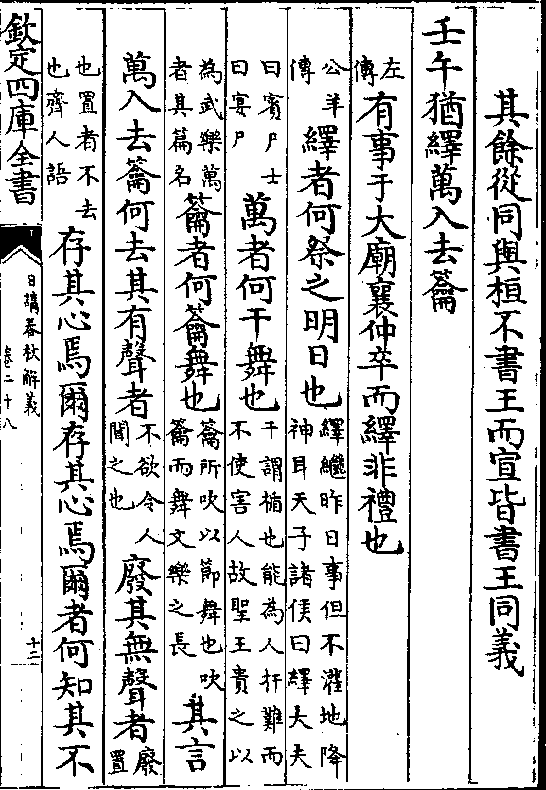 其餘從同與桓不書王而宣皆書王同義
壬午猶繹萬入去籥
左傳有事于大廟襄仲卒而繹非禮也
公羊傳繹者何祭之明日也繹繼昨日事但不灌地降神耳天子諸侯曰繹大夫
曰賓尸士曰宴尸萬者何干舞也干謂楯也能為人扞難而不使害人故聖王貴之以
為武樂萬者其篇名籥者何籥舞也籥所吹以節舞也吹籥而舞文樂之長其言
萬入去籥何去其有聲者不欲令人聞之也廢其無聲者廢置
也置者不去也齊人語存其心焉爾存其心焉爾者何知其不
欽定四庫全書
日講春秋解義
卷二十八
十二